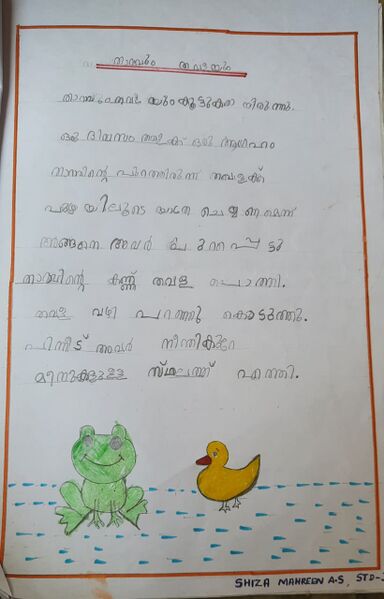 താറാവും തവളയും
താറാവും തവളയും കൂട്ടുകാരായിരുന്നു.
ഒരു ദിവസം തവളക്ക് ഒരു ആഗ്രഹം
താറാവിന്റെ പുറത്തിരുന്ന് തവളക്ക്
പുഴയിലൂടെ യാത്ര ചെയ്യണമെന്ന്
അങ്ങനെ അവർ പുറപ്പെട്ടു
താറാവിന്റെ കണ്ണ് തവള പൊത്തി.
തവള വഴി പറഞ്ഞു കൊടുത്തു.
പിന്നീട് അവർ നീന്തി
മീനുകളുള്ള സ്ഥലത്ത് എത്തി.
SHIZA MAHREEN A.S, STD-